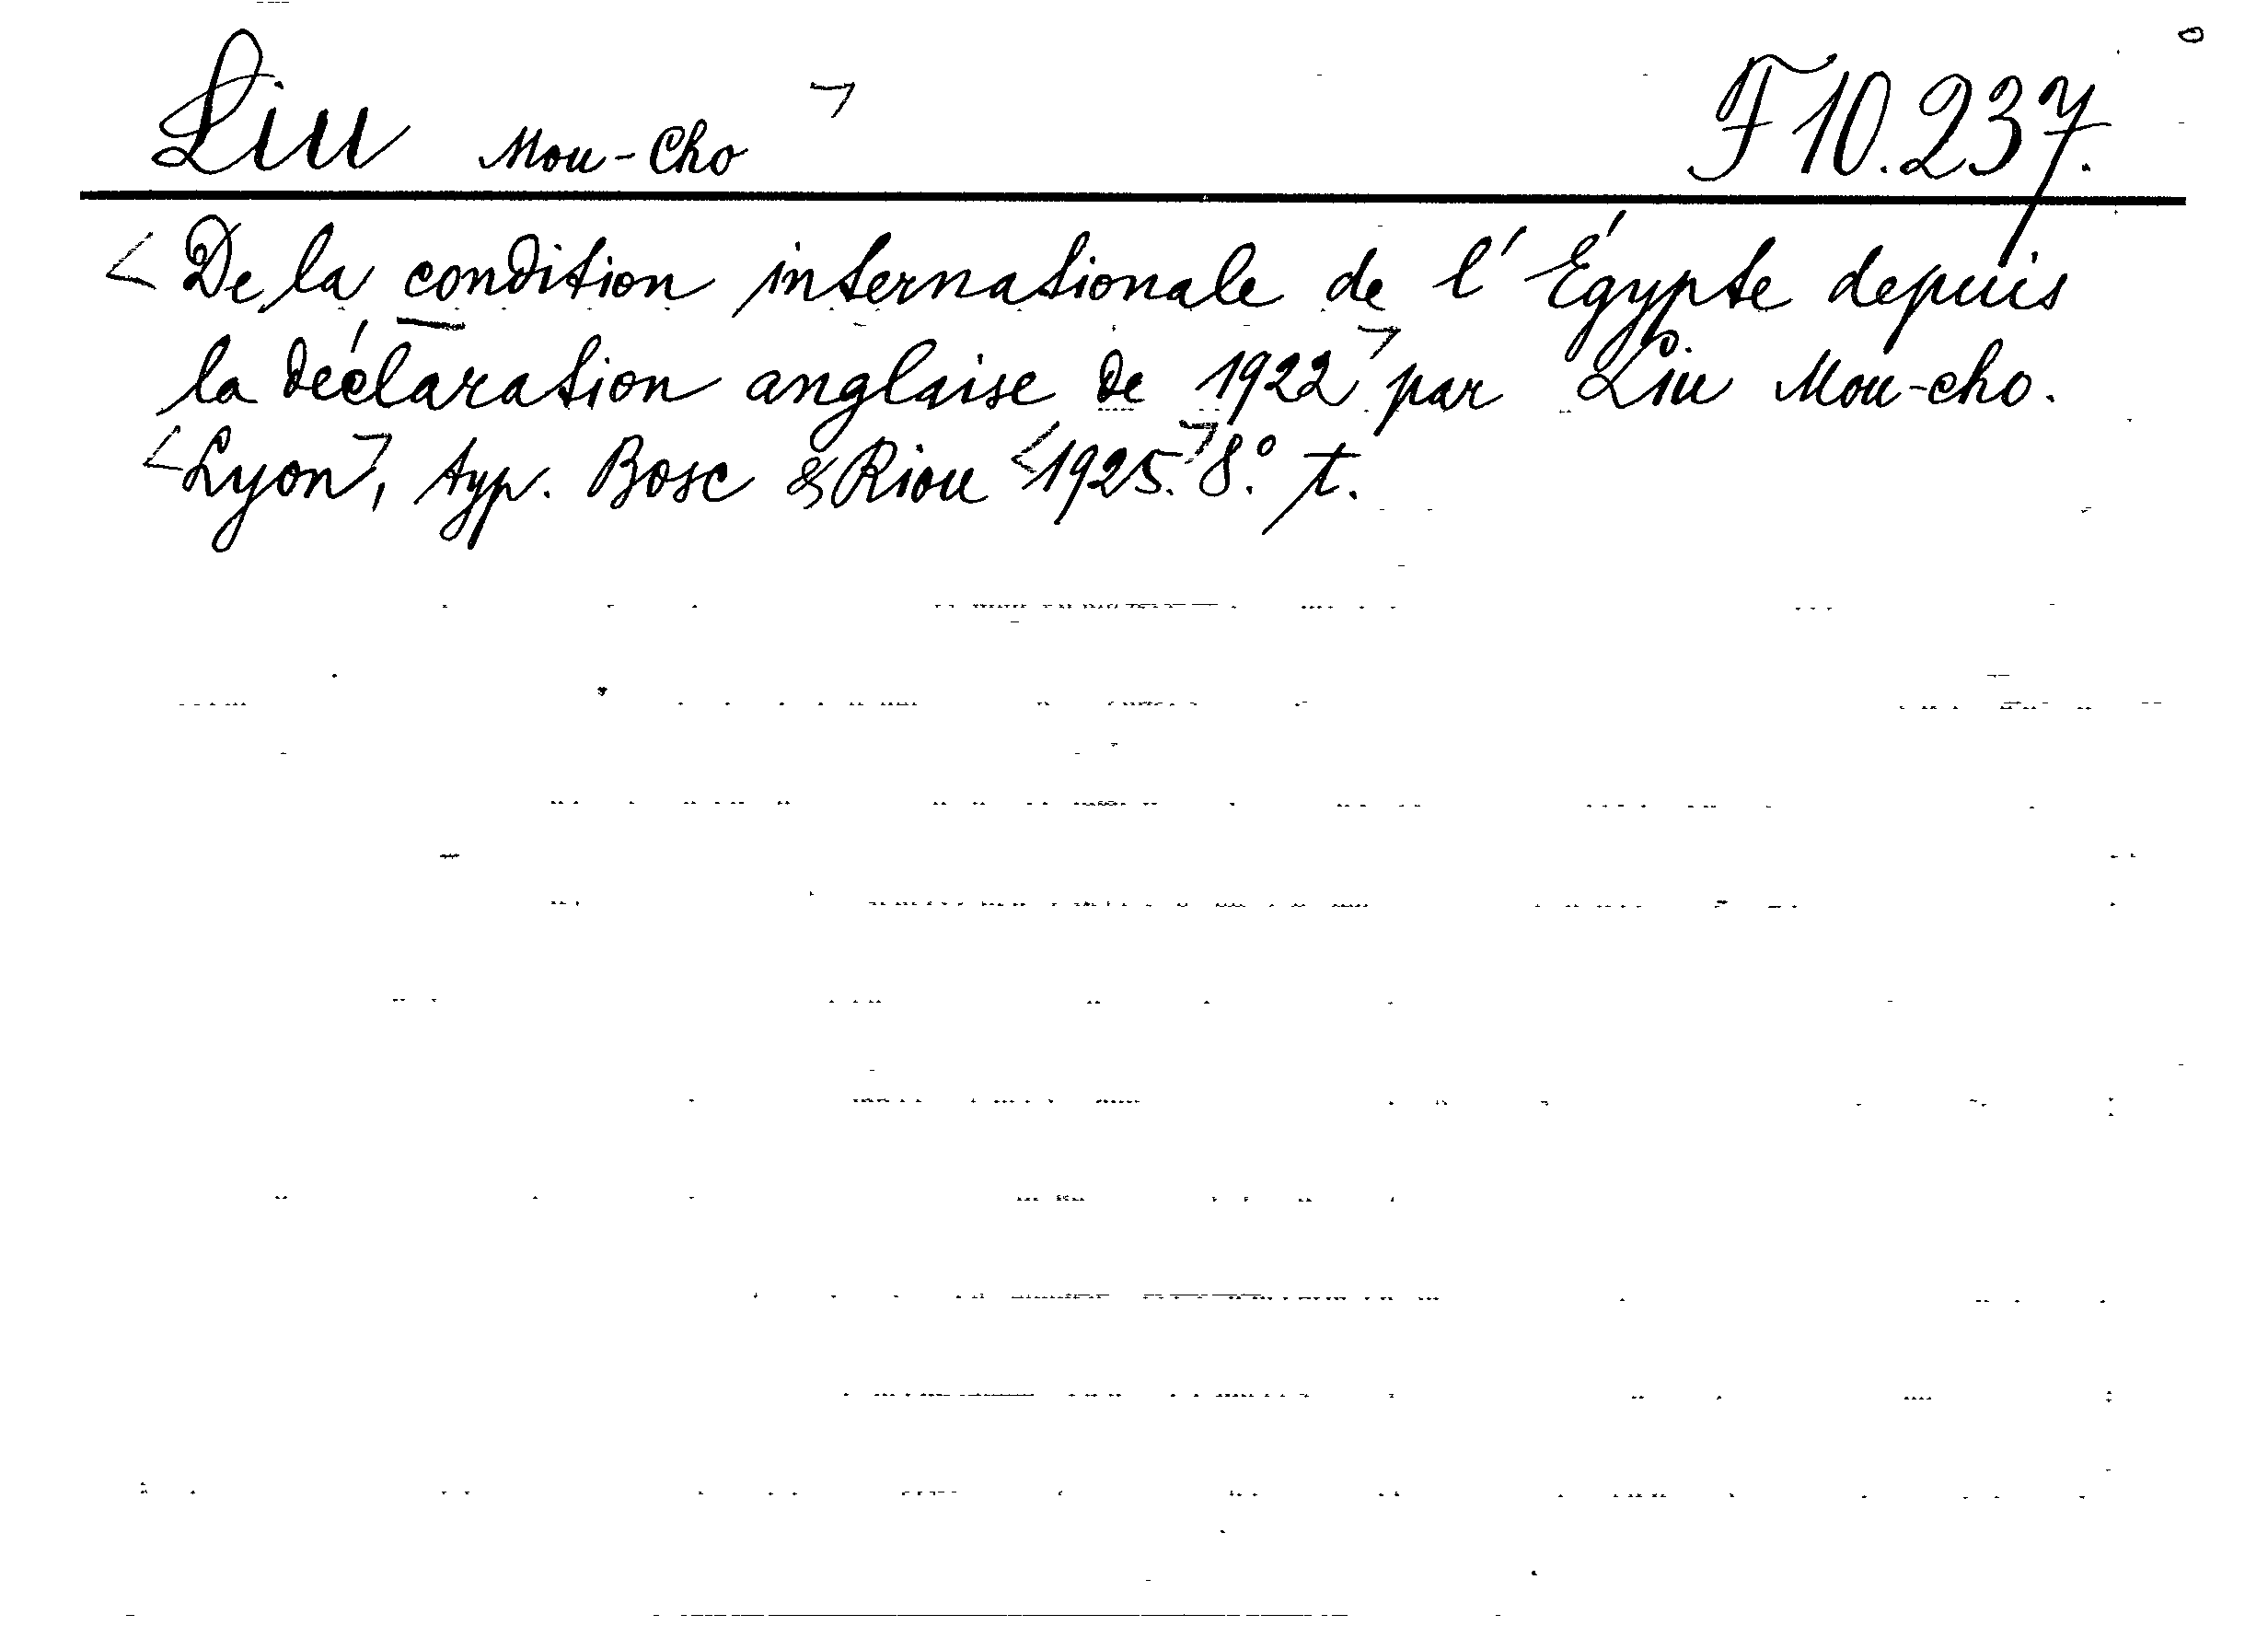 Liu Mou-Cho ¬ F 10.237.
< De la condition internationale de l'Égypte depuis
la déclaration anglaise de 1922 ¬ par Liu Mou-cho.
< Lyon ¬, typ. Bosc & Riou < 1925. ¬ 8.° t.